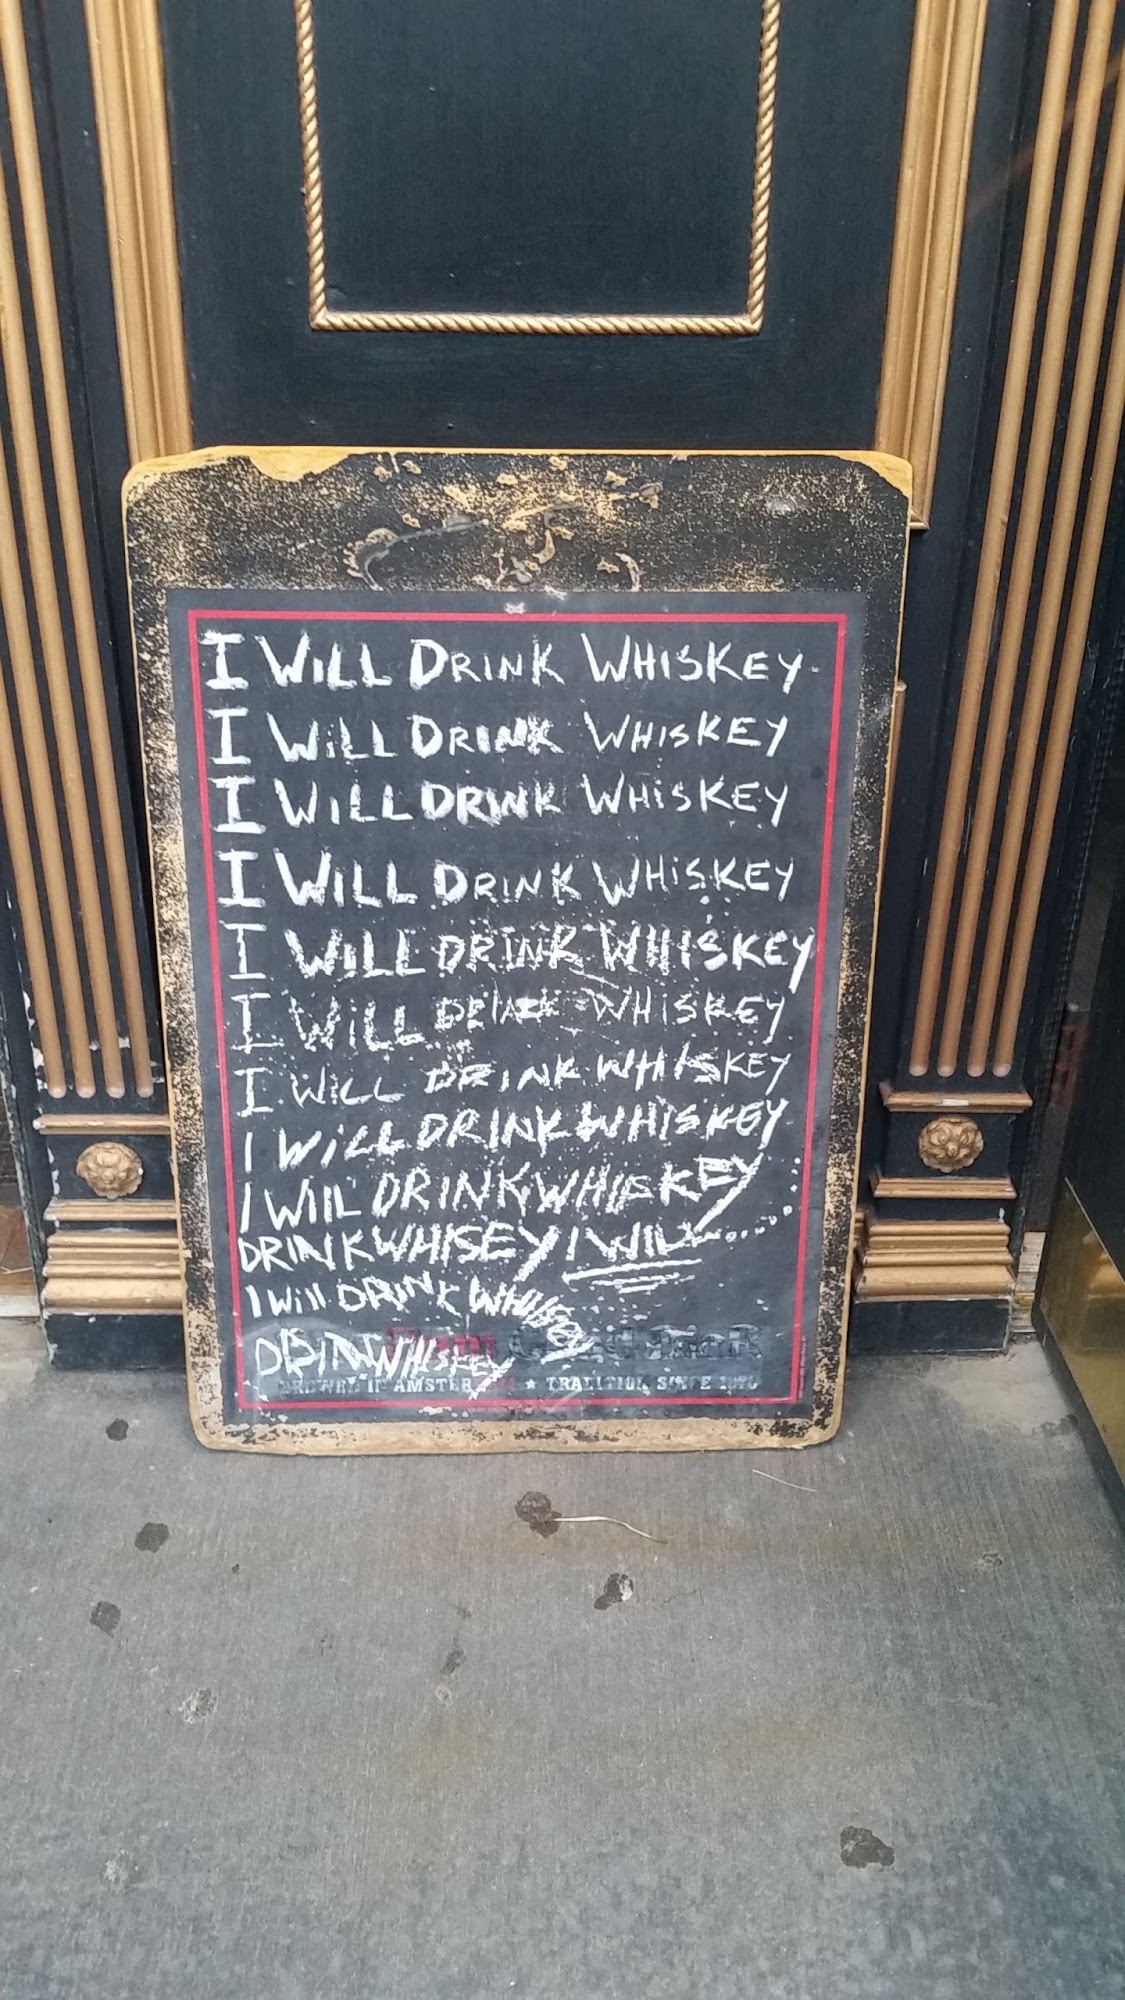 I WiLL DRINK WHISKEY
I WiLL DRINK WHISKEY
I WiLL DRINK WHiSKEY
I WiLL DRINK WHiSKEY
I WiLL DRINK WHIISKEY
I WiLL DRINK WHiSKEY
I WiLL DRINK WHISKEY
I WiLL DRINK WHISKEY
I WIIL DRINK WHISKEY
DRINK WHISEY I WILL....
I Will DRINK WHISKEY
DRINK WHISKEY
BREWED IN AMSTERDAM ★ TRADITION SINCE